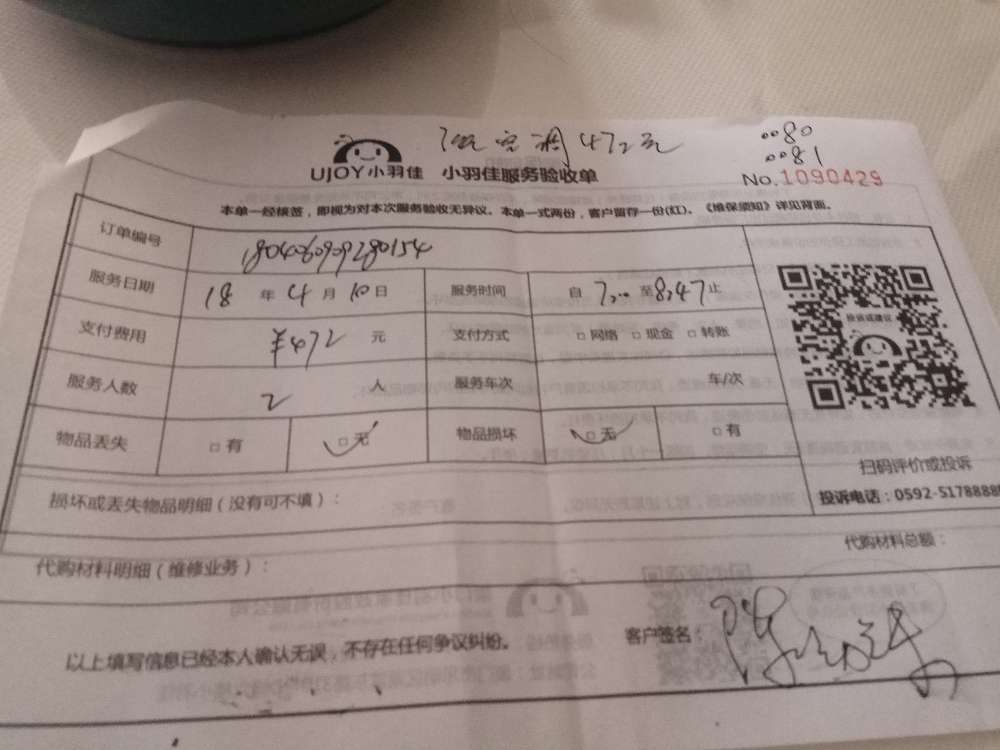 空调 472元
0080
0081
UJOY小羽佳 小羽佳服务验收单
No.1090429
本单一经核签，即视为对本次服务验收无异议。本单一式两份，客户留存一份(红)。《维保须知》详见背面。
订单编号
服务日期 18 年 4 月 10 日 服务时间 自 7:00 至 8:47 止
支付费用 ¥472 元 支付方式 □网络 □现金 □转账
服务人数 2 人 服务车次 车/次
物品丢失 □有 □无 物品损坏 □无 □有
投诉或建议
扫码评价或投诉
投诉电话：0592-5178888
损坏或丢失物品明细（没有可不填）：
代购材料明细（维修业务）： 代购材料总额：
以上填写信息已经本人确认无误，不存在任何争议纠纷。 客户签名：